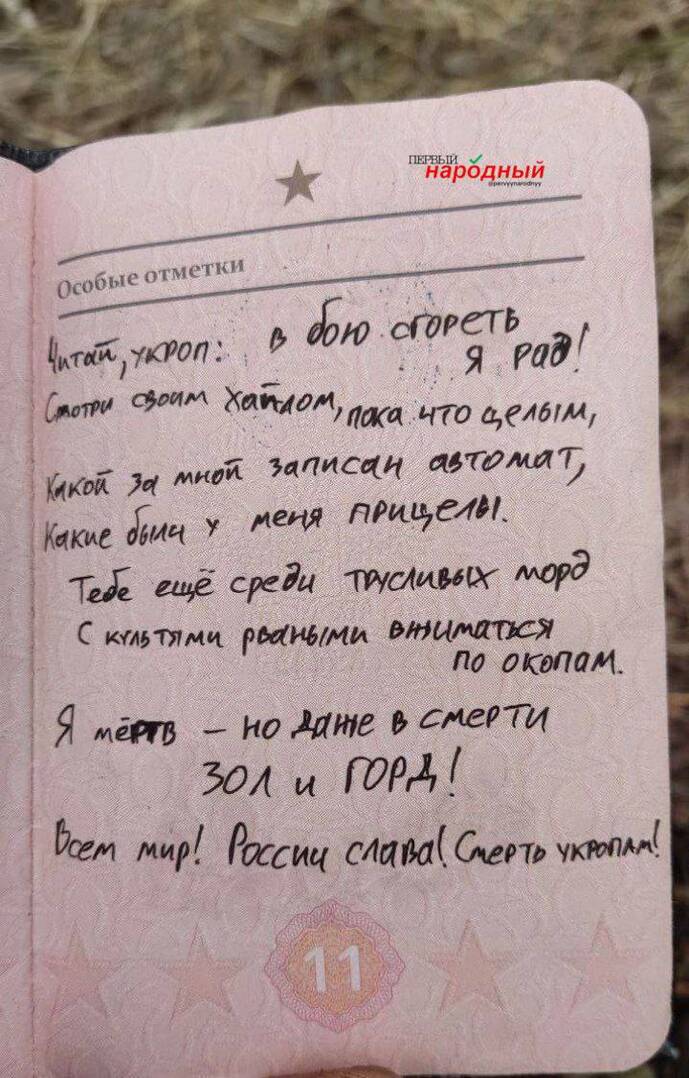 ПЕРВЫЙ
народный
@pervyynarodnyy
Особые отметки
Читай, укроп: в бою сгореть
я рад!
Смотри своим хайлом, пока что целым,
Какой за мной записан автомат,
Какие были у меня прицелы.
Тебе ещё среди трусливых морд
С культями рваными вжиматься
по окопам.
Я мёртв – но даже в смерти
ЗОЛ и ГОРД!
Всем мир! России слава! Смерть укропам!
11